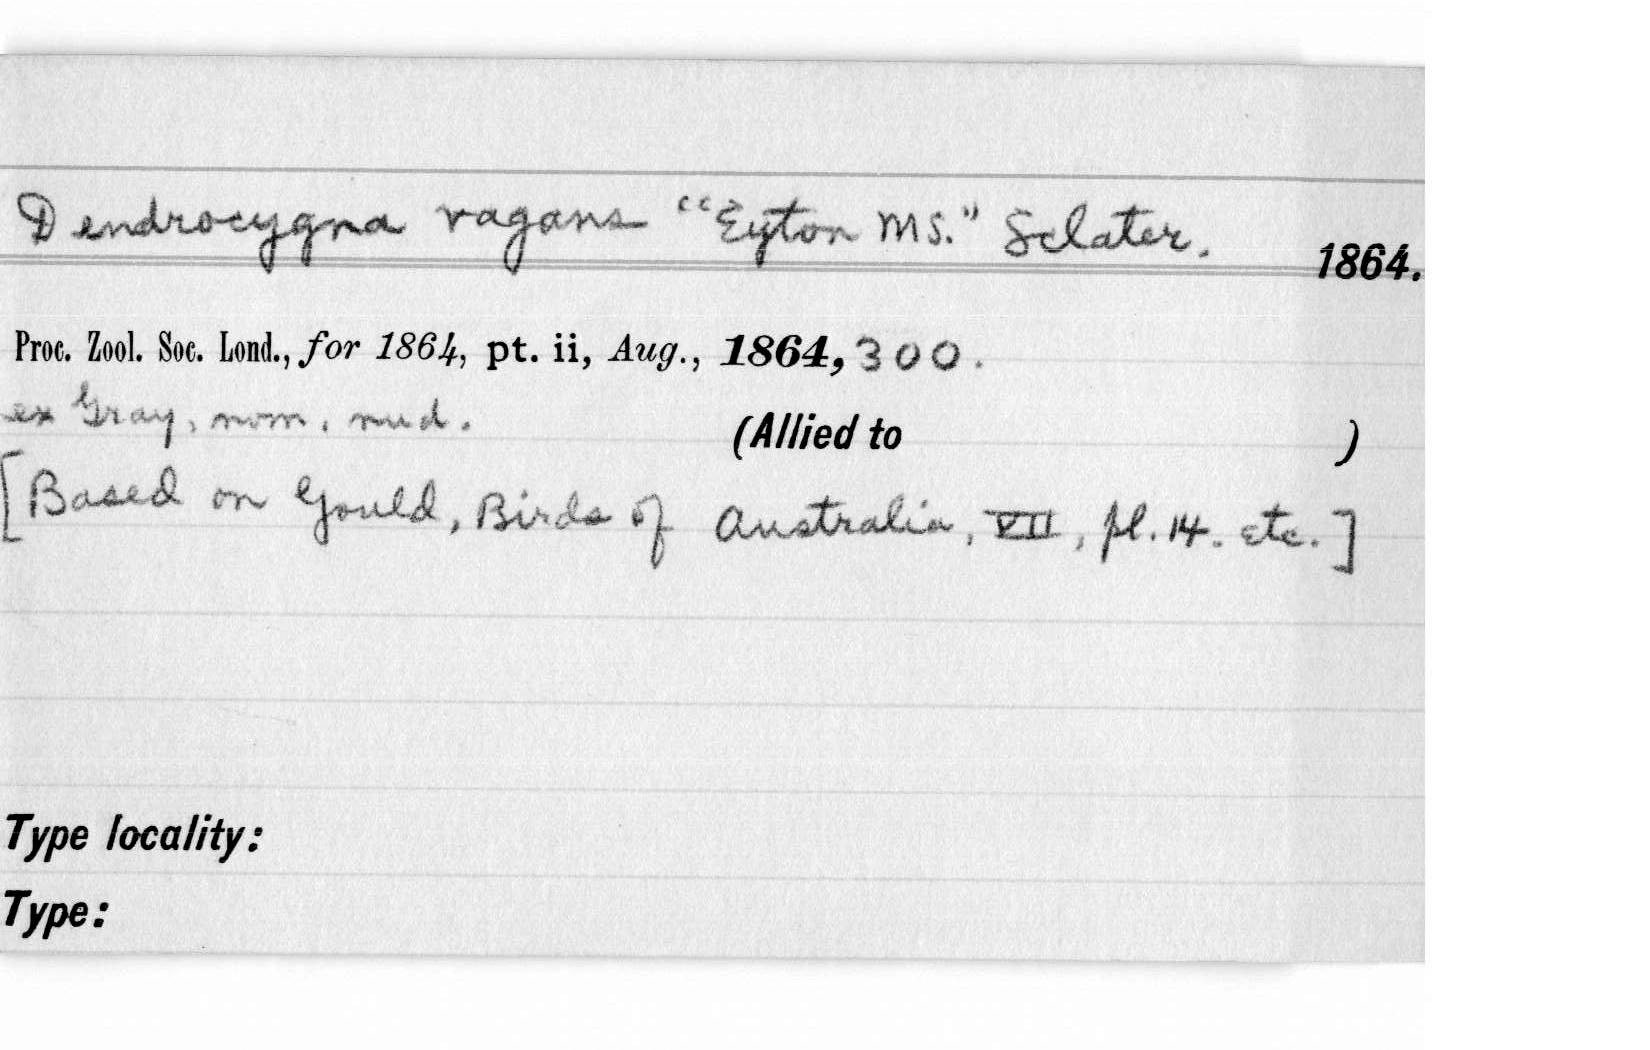 Dendrocygna vagans "Eyton MS." Sclater. 1864.
Proc. Zool. Soc. Lond., for 1864, pt. ii, Aug., 1864, 300.
ex Gray, nom. nud. (Allied to )
[Based on Gould, Birds of Australia, VII, pl. 14. etc.]
Type locality:
Type: